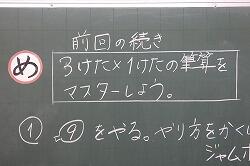 前回の続き
め
3けた×1けたの筆算を
マスターしよう。
① ⑨をやる。やり方をかく
ジャムボ